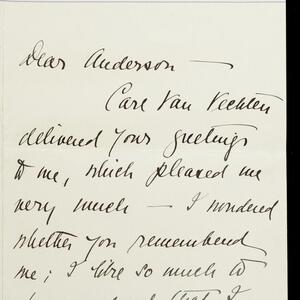 Dear Anderson —
Carl Van Vechten
delivered your greetings
to me, which pleased me
very much — I wondered
whether you remembered
me; I like so much to
that I